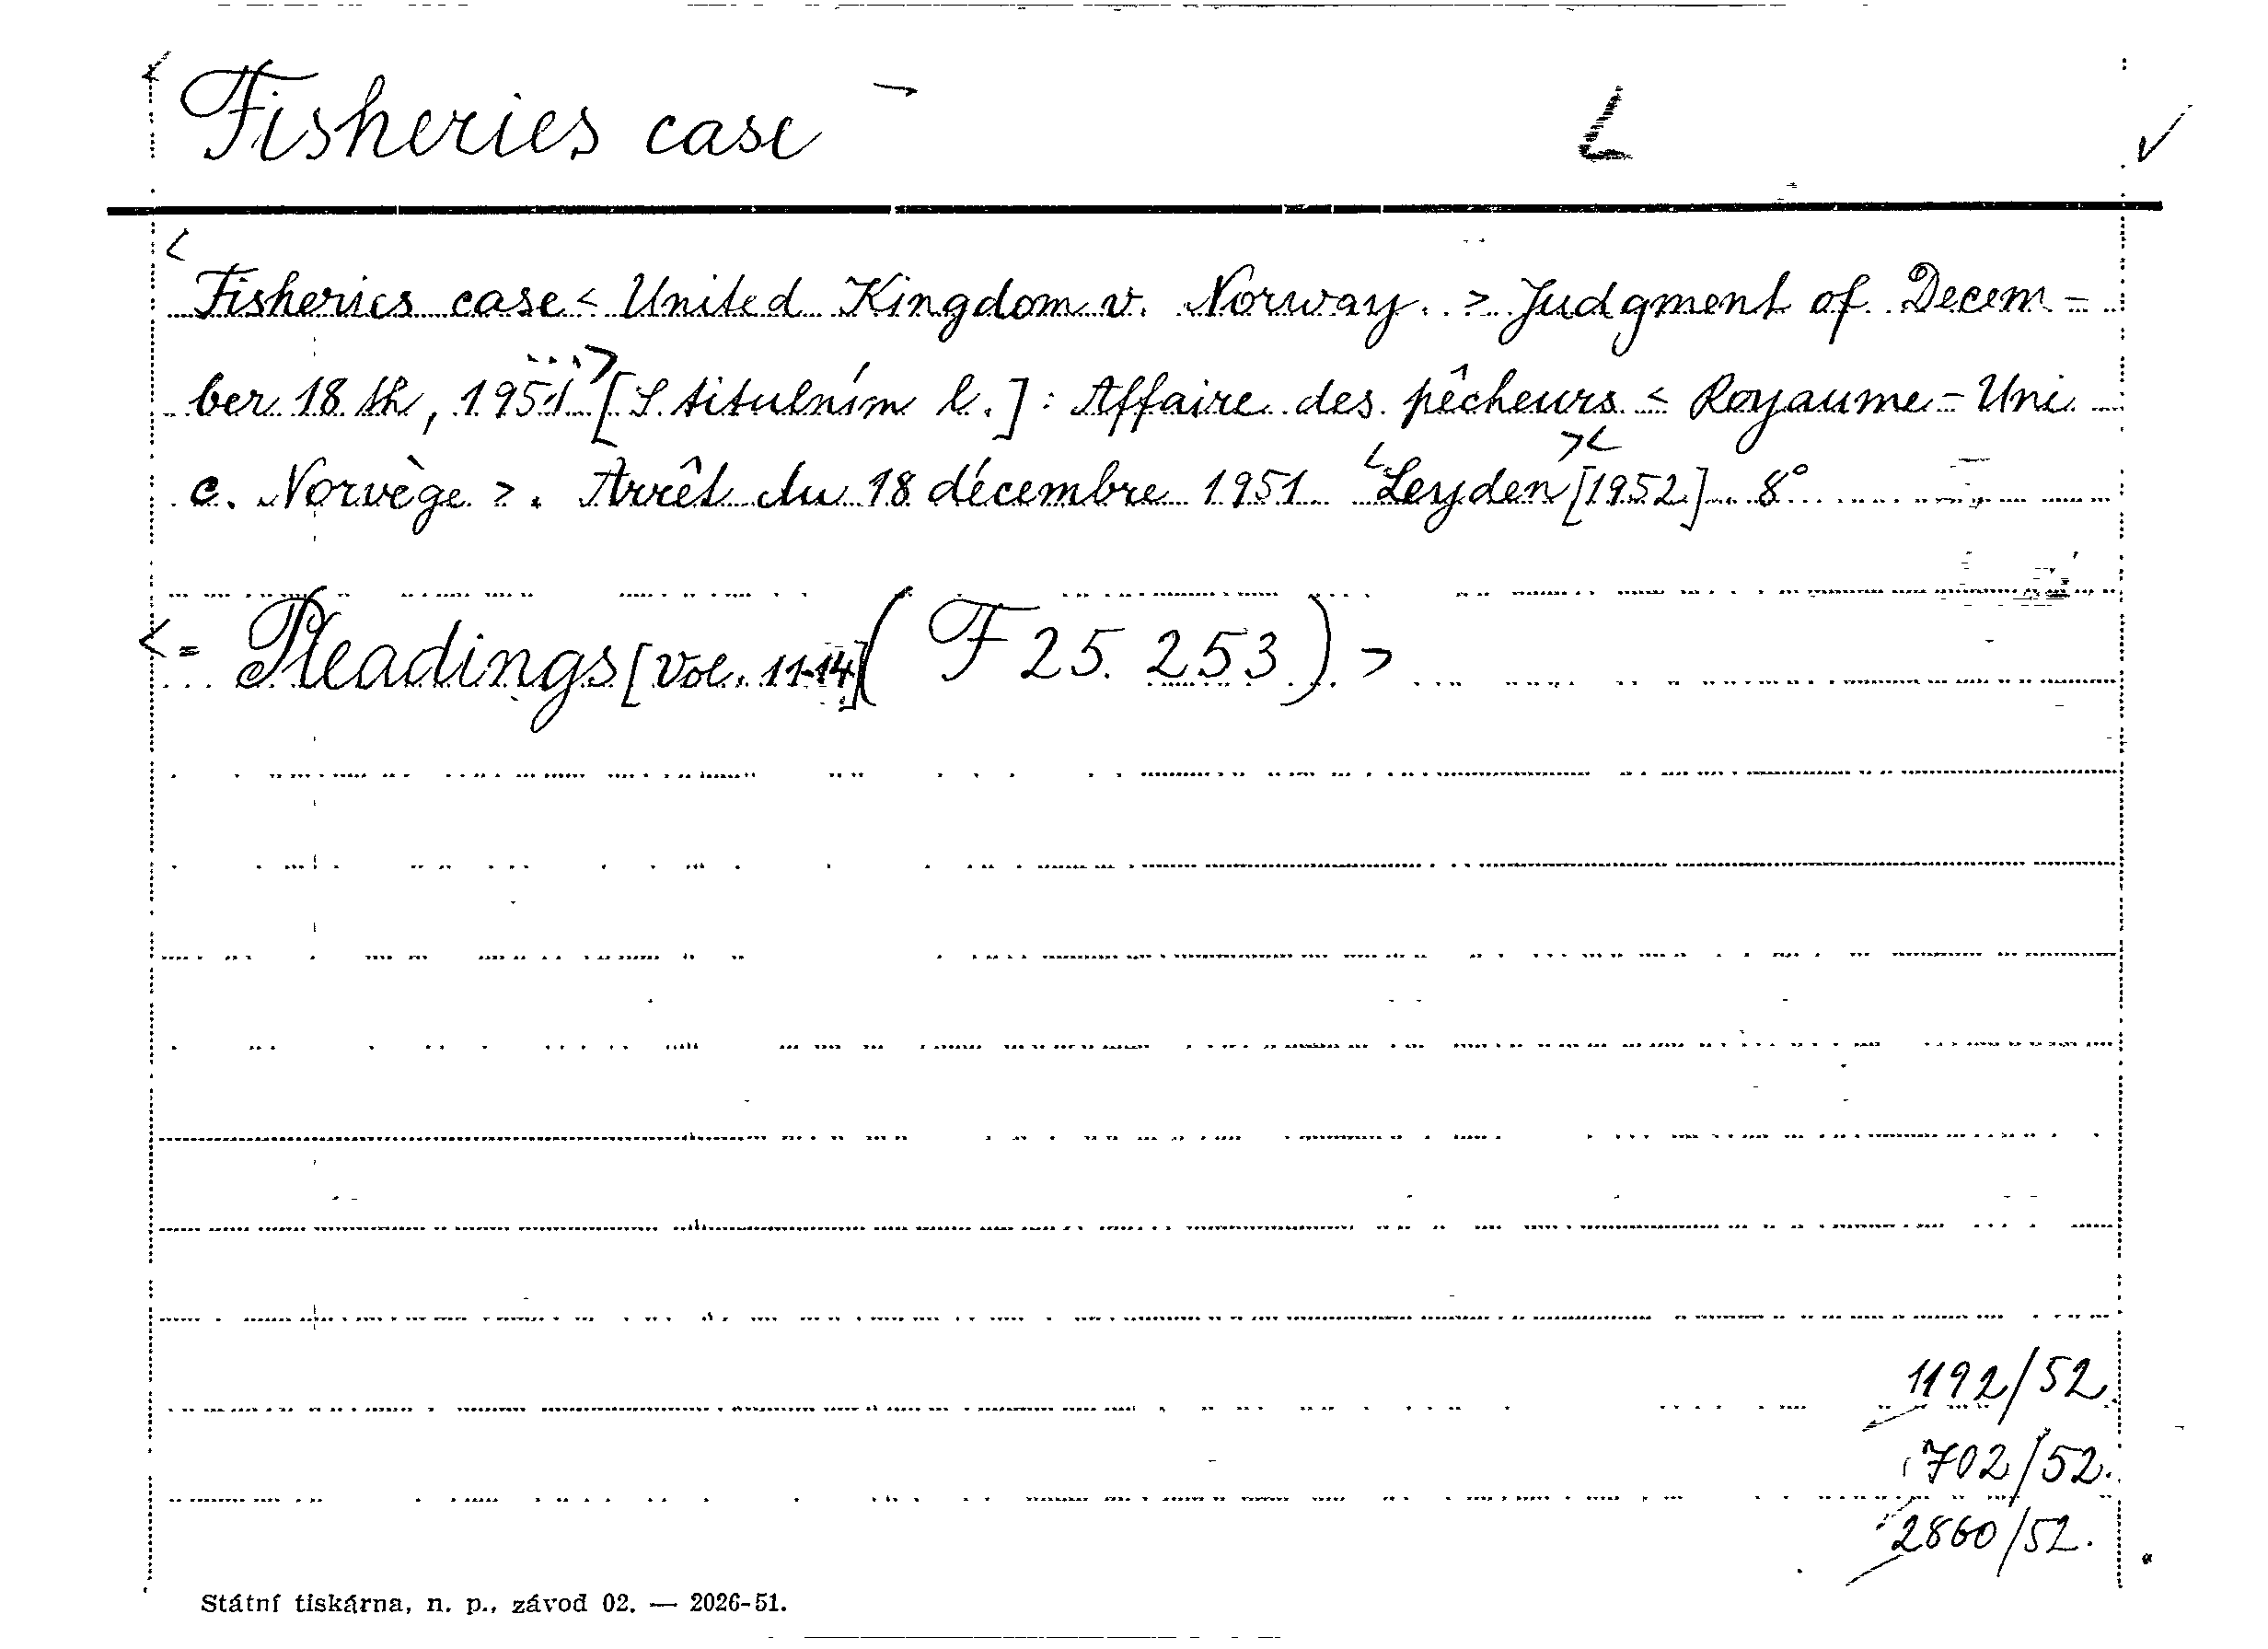 Fisheries case L
Fisheries case < United Kingdom v. Norway. > Judgment of Decem-
ber 18 th, 1951 [S titulním l.] : Affaire des pêcheurs < Royaume-Uni
c. Norvège >. Arrêt du 18 décembre 1951 Leyden [1952] 8°
<= Pleadings [Vol. 11-14] (F 25.253) >
1192/52.
702/52.
2860/52.
Státní tiskárna, n. p., závod 02. — 2026-51.